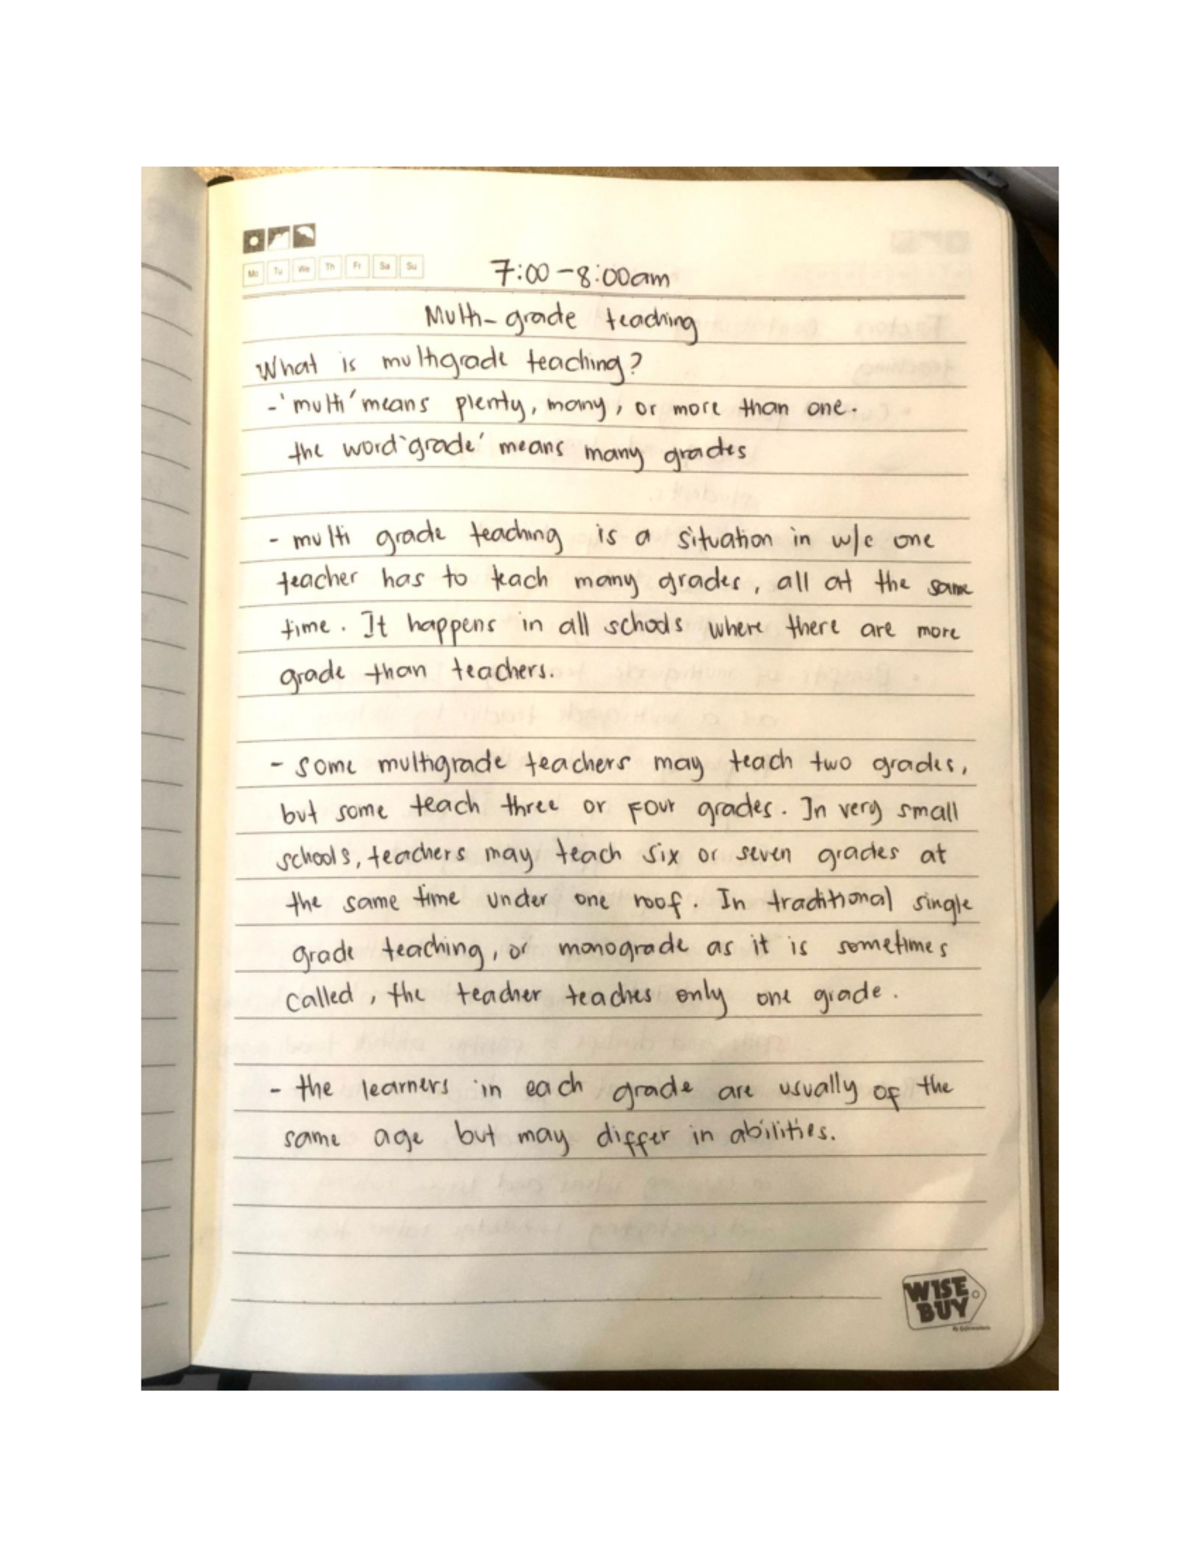 Mo Tu We Th Fr Sa Su
7:00-8:00am
Multi-grade teaching
What is multigrade teaching?
-'multi' means plenty, many, or more than one.
the word 'grade' means many grades
- multi grade teaching is a situation in w/c one
teacher has to teach many grades, all at the same
time. It happens in all schools where there are more
grade than teachers.
- some multigrade teachers may teach two grades,
but some teach three or four grades. In very small
schools, teachers may teach six or seven grades at
the same time under one roof. In traditional single
grade teaching, or monograde as it is sometimes
called, the teacher teaches only one grade.
- the learners in each grade are usually of the
same age but may differ in abilities.
WISE
BUY